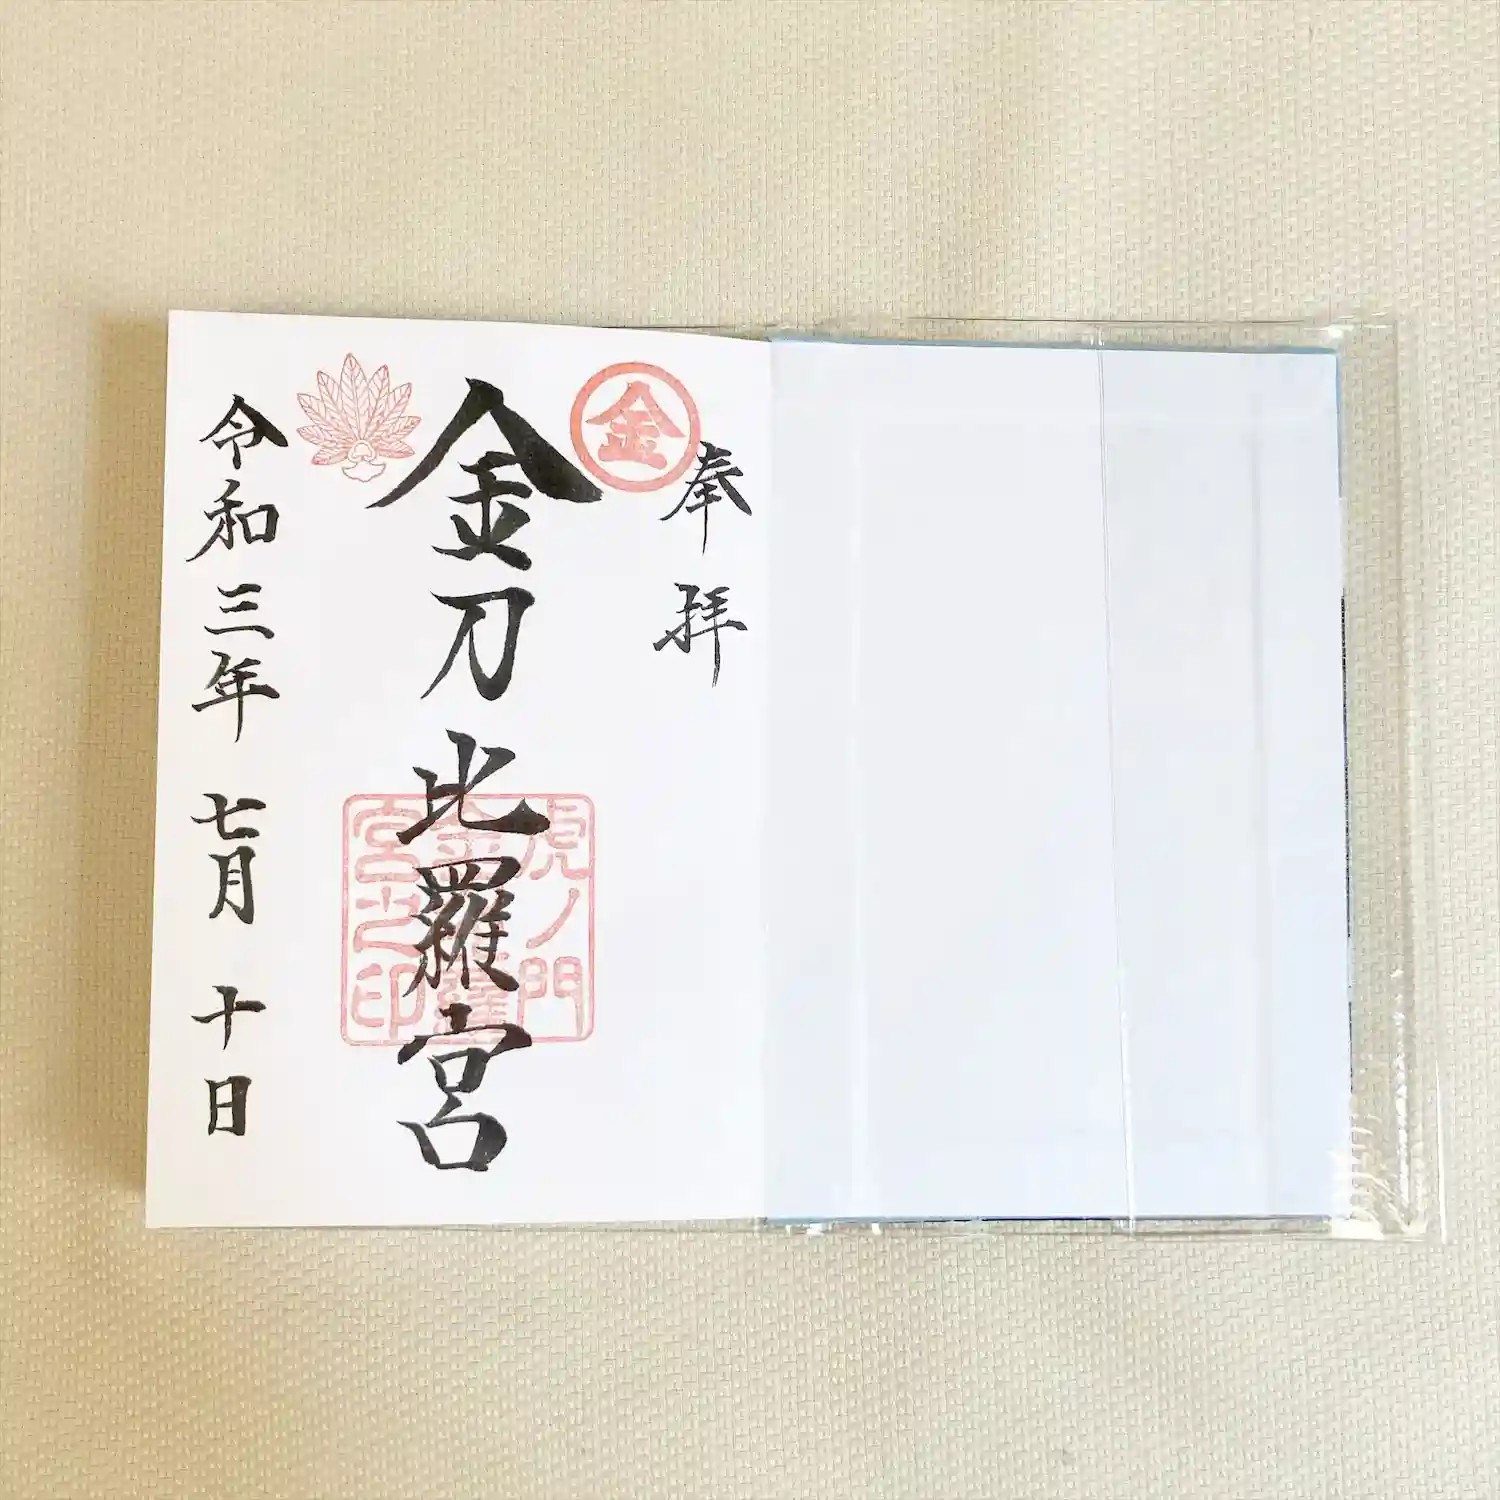 奉拝
金
金刀比羅宮
虎ノ門
金
羅
宮之印
令和三年 七月 十日